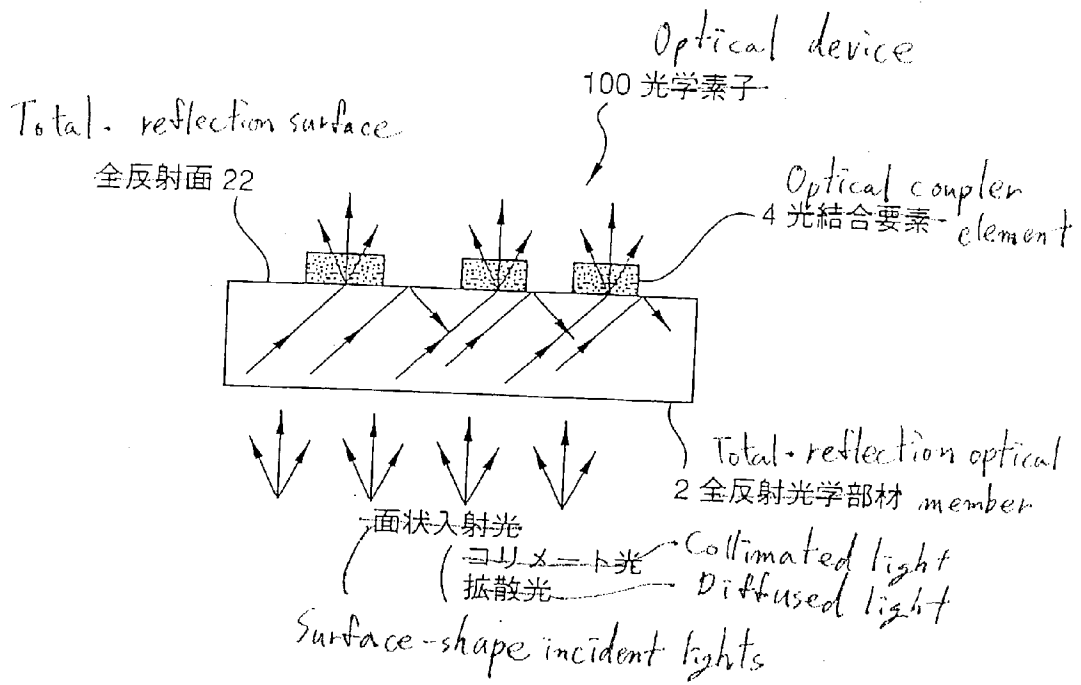 Optical device
100 光学素子
Total. reflection surface
全反射面 22
Optical coupler
4 光結合要素 element
Total. reflection optical
2 全反射光学部材 member
面状入射光
コリメート光 Collimated light
拡散光 Diffused light
Surface-shape incident lights